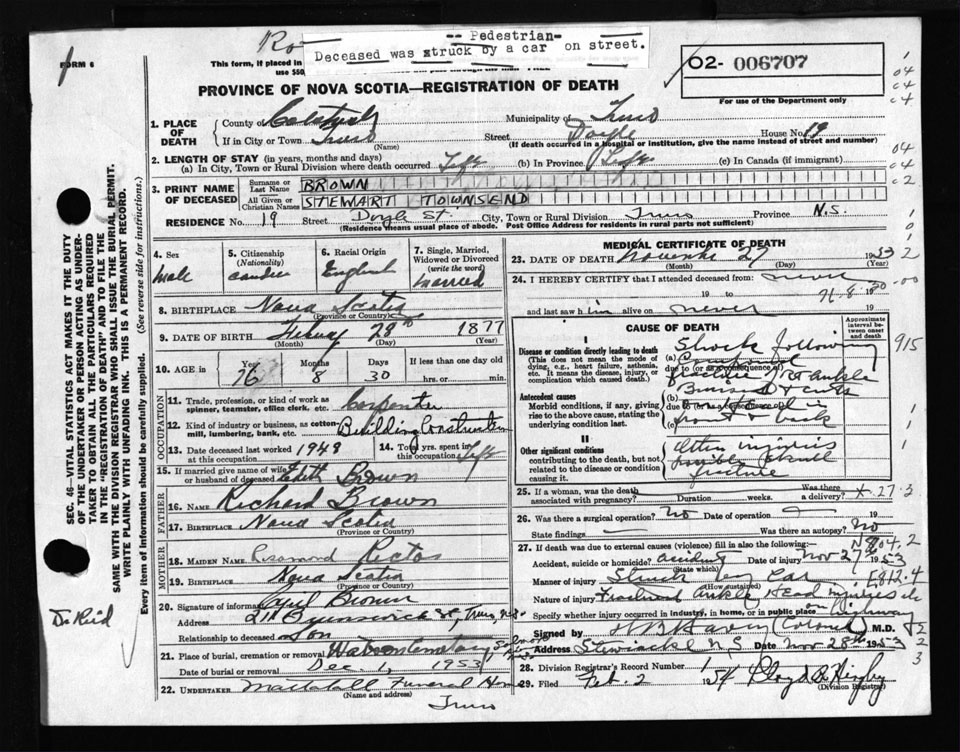 FORM 6
-- Pedestrian-
Deceased was struck by a car on street.
This form, if located in
use $50,
O2- 006707
For use of the Department only
PROVINCE OF NOVA SCOTIA—REGISTRATION OF DEATH
1. PLACE OF DEATH
County of Colchester Municipality of Truro
If in City or Town Truro (Name) Street Doyle House No. 19
(If death occurred in a hospital or institution, give the name instead of street and number)
2. LENGTH OF STAY (in years, months and days)
(a) In City, Town or Rural Division where death occurred Life (b) In Province Life (c) In Canada (if immigrant)
3. PRINT NAME OF DECEASED
Surname or Last Name BROWN
All Given or Christian Names STEWART TOWNSEND
RESIDENCE No. 19 Street Doyle St. City, Town or Rural Division Truro Province N.S.
(Residence means usual place of abode. Post Office Address for residents in rural parts not sufficient)
4. Sex Male
5. Citizenship (Nationality)
6. Racial Origin English
7. Single, Married, Widowed or Divorced (write the word) Married
8. BIRTHPLACE Nova Scotia
(Province or Country)
9. DATE OF BIRTH 28th 1877
(Month) (Day) (Year)
10. AGE in Years 76 Months 8 Days 30 If less than one day old hrs. or min.
OCCUPATION
11. Trade, profession, or kind of work as spinner, teamster, office clerk, etc. Carpenter
12. Kind of industry or business, as cotton-mill, lumbering, bank, etc. Building Construction
13. Date deceased last worked 1949 14. Total yrs. spent in this occupation Life
15. If married give name of wife or husband of deceased Edith Brown
FATHER
16. NAME Richard Brown
17. BIRTHPLACE Nova Scotia
(Province or Country)
MOTHER
18. MAIDEN NAME Rosamond
19. BIRTHPLACE Nova Scotia
(Province or Country)
20. Signature of informant Cyril Brown
Address Brunswick St, Truro, N.S.
Relationship to deceased Son
21. Place of burial, cremation or removal Watson Cemetery,
Date of burial or removal Dec. 1, 1953
22. UNDERTAKER Mattatall Funeral Home
(Name and address)
Truro
MEDICAL CERTIFICATE OF DEATH
23. DATE OF DEATH November 27 1953
(Month) (Day) (Year)
24. I HEREBY CERTIFY that I attended deceased from: never
19 to 19
and last saw him alive on never 19
CAUSE OF DEATH
Approximate interval between onset and death
I
Disease or condition directly leading to death
(This does not mean the mode of dying, e.g., heart failure, asthenia, etc. It means the disease, injury, or complication which caused death.)
(a) Shock following Compound
due to (or as a consequence of)
fracture Rt ankle
Antecedent causes
Morbid conditions, if any, giving rise to the above cause, stating the underlying condition last.
(b) Bruises & cuts
due to (or as a consequence of)
(c) front & back
II
Other significant conditions
contributing to the death, but not related to the disease or condition causing it.
Other injuries
possible skull
fracture
25. If a woman, was the death associated with pregnancy? Duration weeks. Was there a delivery?
26. Was there a surgical operation? No Date of operation 19
State findings Was there an autopsy? No
27. If death was due to external causes (violence) fill in also the following:— N804.2
Accident, suicide or homicide? accident Date of injury Nov 27 1953
(State which)
Manner of injury Struck by Car E812.4
(How sustained)
Nature of injury Fractured Ankle Head injuries etc
Specify whether injury occurred in industry, in home, or in public place on highway
Signed by M.D.
Address Stewiacke N.S Date Nov 28th 1953
28. Division Registrar's Record Number 1
29. Filed Feb. 2 1954 Lloyd
(Division Registrar)
SEC. 46—VITAL STATISTICS ACT MAKES IT THE DUTY
OF THE UNDERTAKER OR PERSON ACTING AS UNDER-
TAKER TO OBTAIN ALL THE PARTICULARS REQUIRED
IN THE "REGISTRATION OF DEATH" AND TO FILE THE
SAME WITH THE DIVISION REGISTRAR WHO SHALL ISSUE THE BURIAL PERMIT.
WRITE PLAINLY WITH UNFADING INK. THIS IS A PERMANENT RECORD.
Every item of Information should be carefully supplied. (See reverse side for instructions.)
Dr Reid